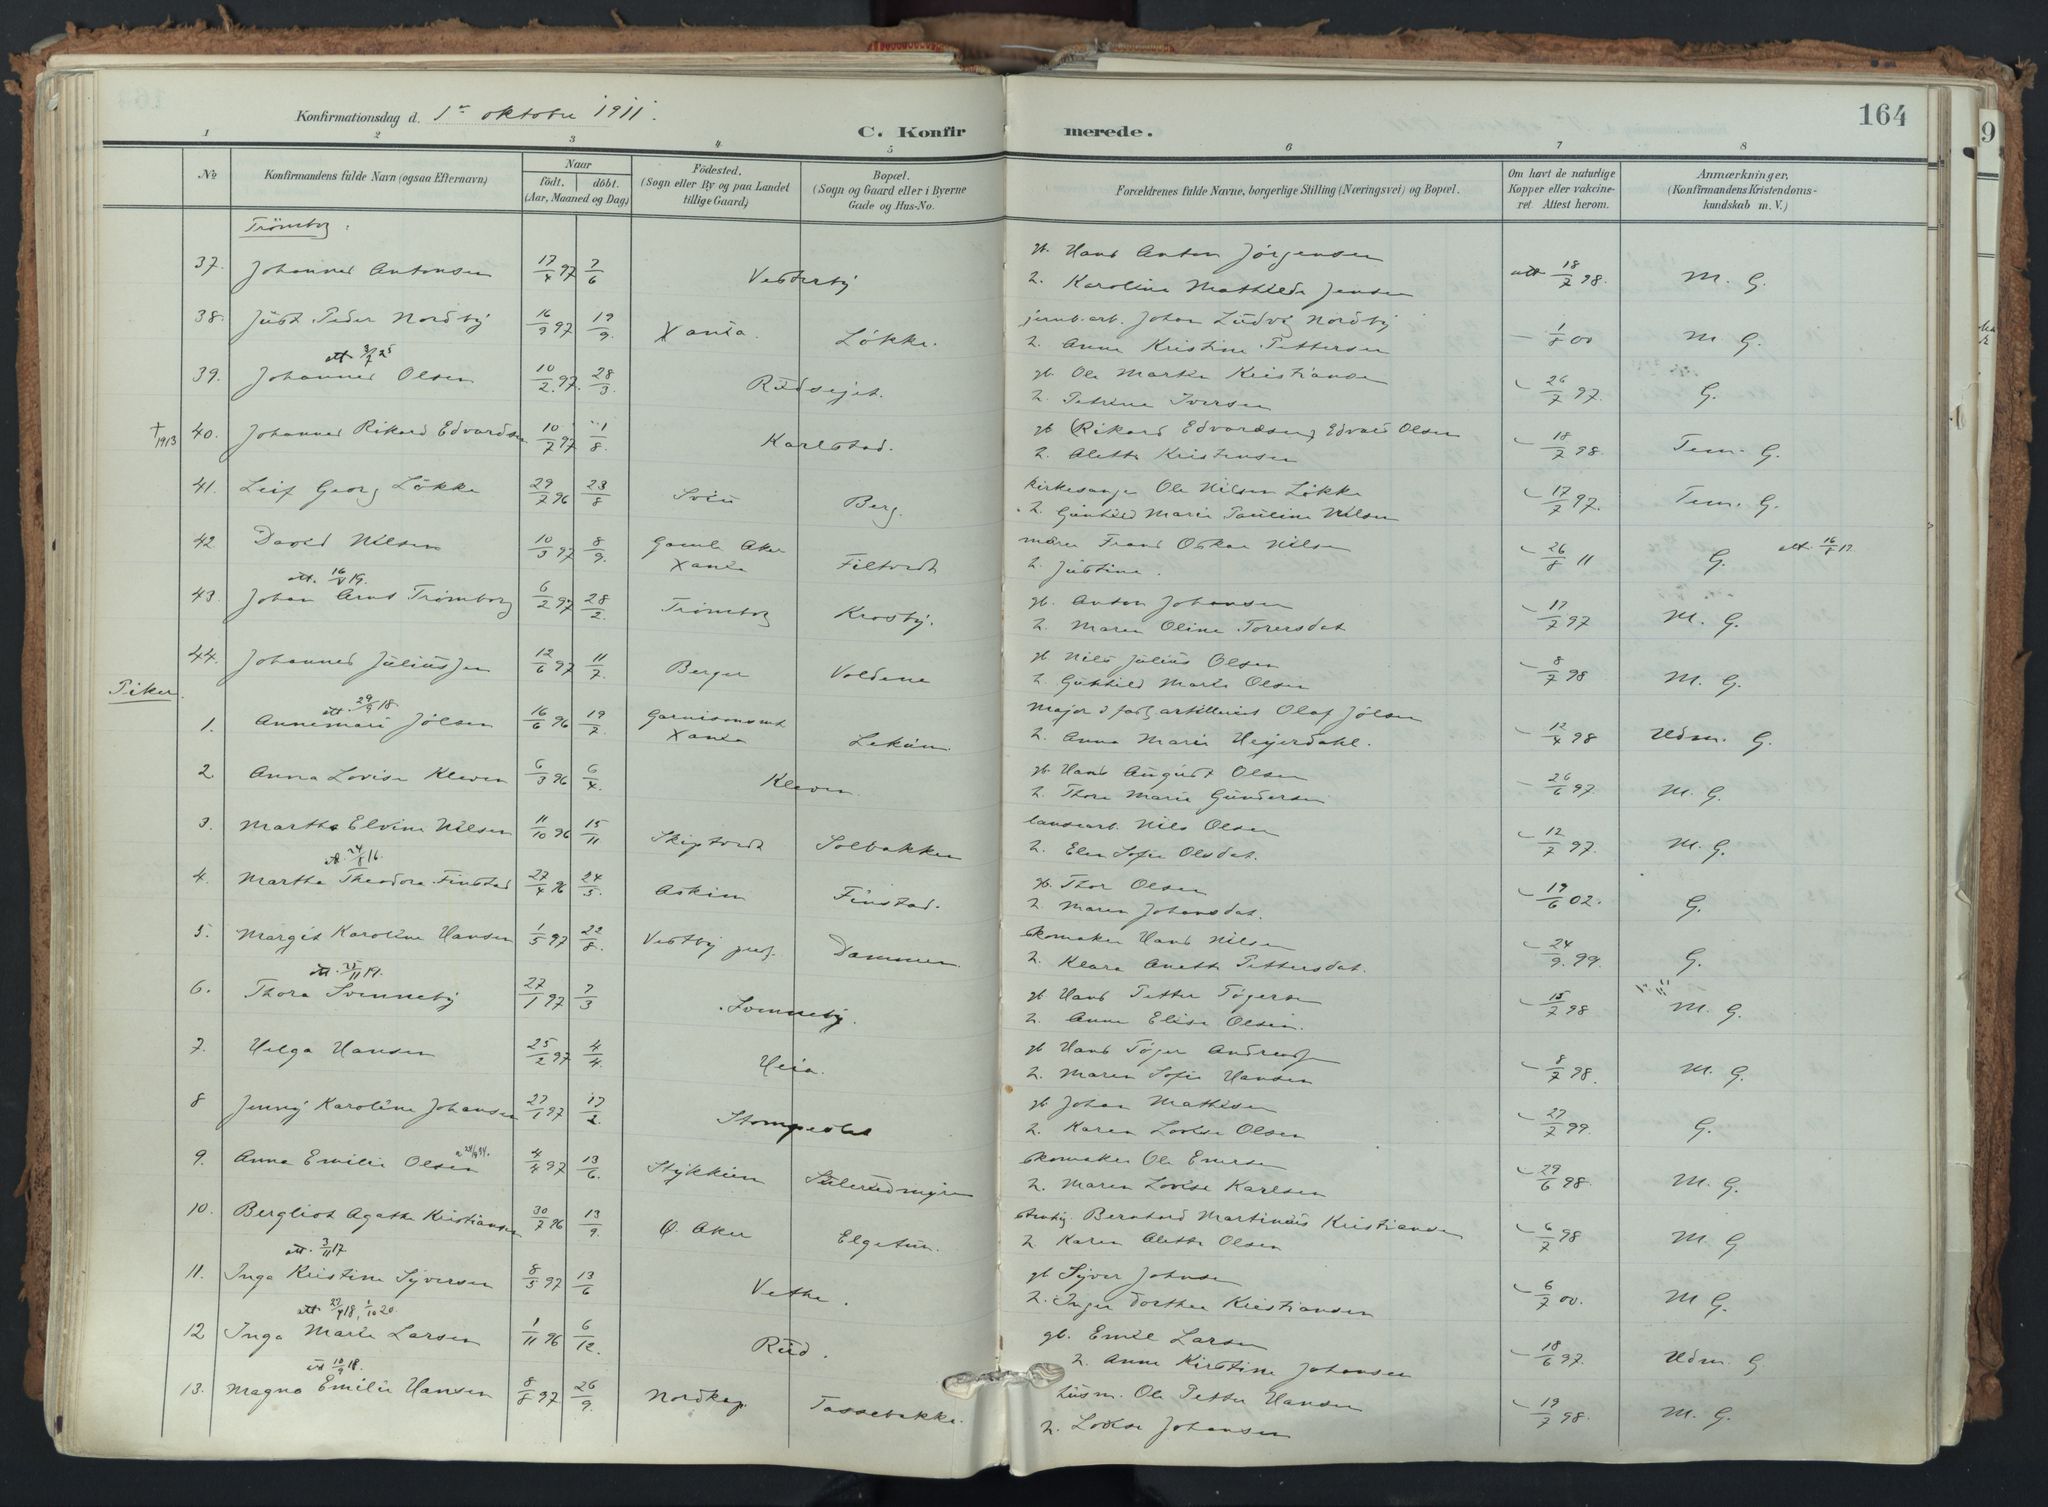 164
Konfirmationsdag d. 1ste oktober 1911.
C. Konfirmerede.
1 2 3 4 5 6 7 8
No Konfirmandens fulde Navn (ogsaa Efternavn) Naar født. døbt. (Aar, Maaned og Dag) Fødested. (Sogn eller By og paa Landet tillige Gaard) Bopæl. (Sogn og Gaard eller i Byerne Gade og Hus-No. Forældrenes fulde Navne, borgerlige Stilling (Næringsvei) og Bopæl. Om havt de naturlige Kopper eller vakcineret. Attest herom. Anmærkninger. (Konfirmandens Kristendomskundskab m. V.)
Trømborg:
37. Johannes Antonsen 17/4 97 7/6 Vesterby gb. Hans Anton Jørgensen att 18/7 98. M. G.
h. Karoline Mathilde Jensen
38. Just Peder Nordby 16/9 97 19/9 Xania. Løkke. jernb. arb. Johan Ludvig Nordby 1/8 00 M. G.
h. Anne Kristine Pettersen
att 3/7 25
39. Johannes Olsen 10/2 97. 28/3. Rudsejet. gb. Ole Martin Kristiansen 26/7 97. G.
h. Petrine Iversen
† 1913 40. Johannes Rikard Edvardsen 10/7 97 1/8. Karlstad. gb (Rikard Edvardsen) Edvard Olsen 18/7 98. Tem. G.
h. Alette Kristensen
41. Leif Georg Løkke 29/7 96 23/8 Berg. kirkesanger Ole Nilsen Løkke 17/7 97. Tem. G.
h. Gunhild Marie Pauline Nilsen
42 David Nilsen 10/3 97 8/9. Gamle Aker Xania Frans Oskar Nilsen 26/8 11 G.
h. Justine.
att. 16/5 19.
43. Johan Arnt Trømborg 6/2 97 28/2. Trømborg Krosby. gb. Anton Johansen 17/7 97 M. G.
h. Maren Oline Torersdat.
44. Johannes Juliussen 12/6 97 11/7 Berger Voldene gb Nils Julius Olsen 8/7 98 M. G.
h. Gunhild Marie Olsen
Piker.
att. 29/9 18
1. Annemari Jølsen 16/6 96 19/7 Garnisonsmt Xania Lekum. Major i Olaf Jølsen 12/4 98 Udm. G.
h. Anna Marie Heyerdahl.
2 Anna Lovise Kleven 6/3 96 6/4. Kleven. gb. Hans August Olsen 26/6 97. M. G.
h. Thora Marie Gundersen
3. Martha Elvine Nilsen 11/10 96 15/11 Skiptvedt Solbakken Nils Olsen 12/7 97. M. G.
h. Elen Sofie Olsdat.
att. 24/8 16.
4. Martha Theodora Finstad 27/4 96 24/5. Askim Finstad. gb. Thor Olsen 19/6 02. G.
h. Maren Johansdat.
5. Margit Karoline Hansen 1/5 97 22/8. Vestby prg. Dammen. skomaker Hans Nilsen 24/9. 99. G.
h. Klara Anette Pettersdat.
att. 25/11 19.
6. Thora Svenneby 27/1 97 7/3 Svenneby. gb Hans Petter Tøgersen 15/7 98 M. G.
h. Anne Elise Olsen.
7. Helga Hansen 25/2 97 4/4. Heia. gb Hans Tøger Andreassen 8/7 98. M. G.
h. Maren Sofie Hansen
8 Jenny Karoline Johansen 27/1 97 17/2. Stompedal gb. Johan Mathisen 27/7 99. G.
h. Karen Lovise Olsen
9. Anna Emilie Olsen 4/4 97 13/6. Stykkien skomaker Ole Enersen 29/6 98. M. G.
h. Maren Lovise Karlsen
10. Bergliot Agathe Kristiansen 30/7 96 13/9 Ø. Aker Elgetun. Bernhard Martinius Kristiansen 6/7 98 M. G
h. Karen Alette Olsen
att. 3/11 17
11. Inga Kristine Syversen 8/5 97 13/6 Vethe. gb Syver Johnsen 6/7 00. M G.
h. Inger Dorthea Kristiansen
att 27/4 18, 1/10 20.
12 Inga Marie Larsen 1/11 96 6/12. Rud. gb. Emil Larsen 18/6 97. Udm. G
h. Anne Kirstine Johansen
att 10/9 18.
13. Magna Emilie Hansen 8/8 97 26/9. Nordkap Tassebakke. husm. Ole Petter Hansen 19/7 98. M. G.
h. Lovise Johansen